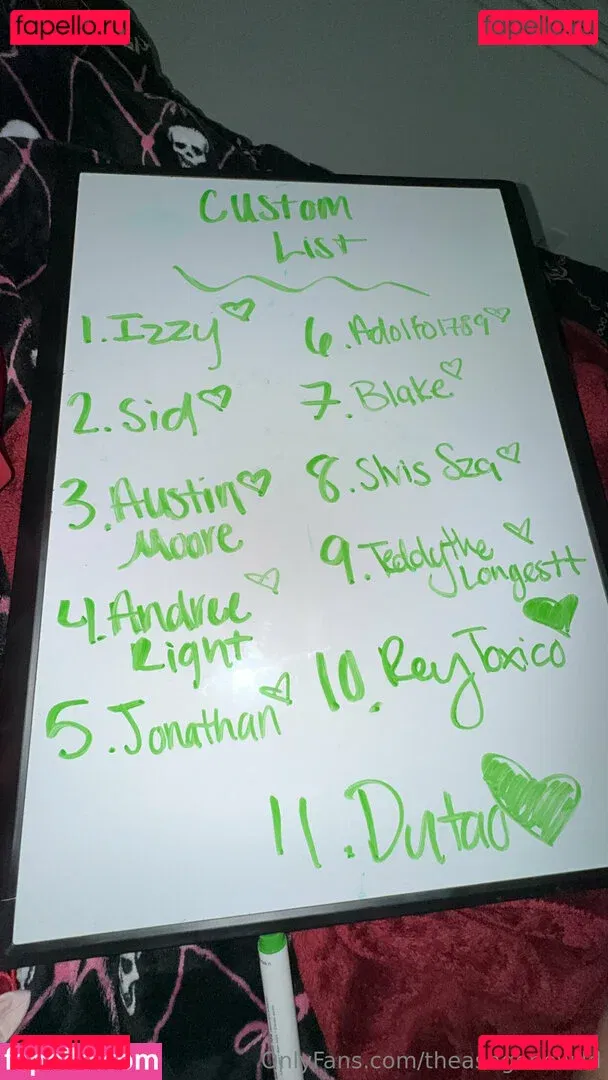 fapello.ru fapello.ru
Custom
List
1. Izzy
2. Sid
3. Austin
Moore
4. Andree
Right
5. Jonathan
6. Adolfo1789
7. Blake
8. Slvis Sza
9. Teddythe
Longestt
10. ReyToxico
11. Dutao
fapello.ru
OnlyFans.com/
fapello.ru